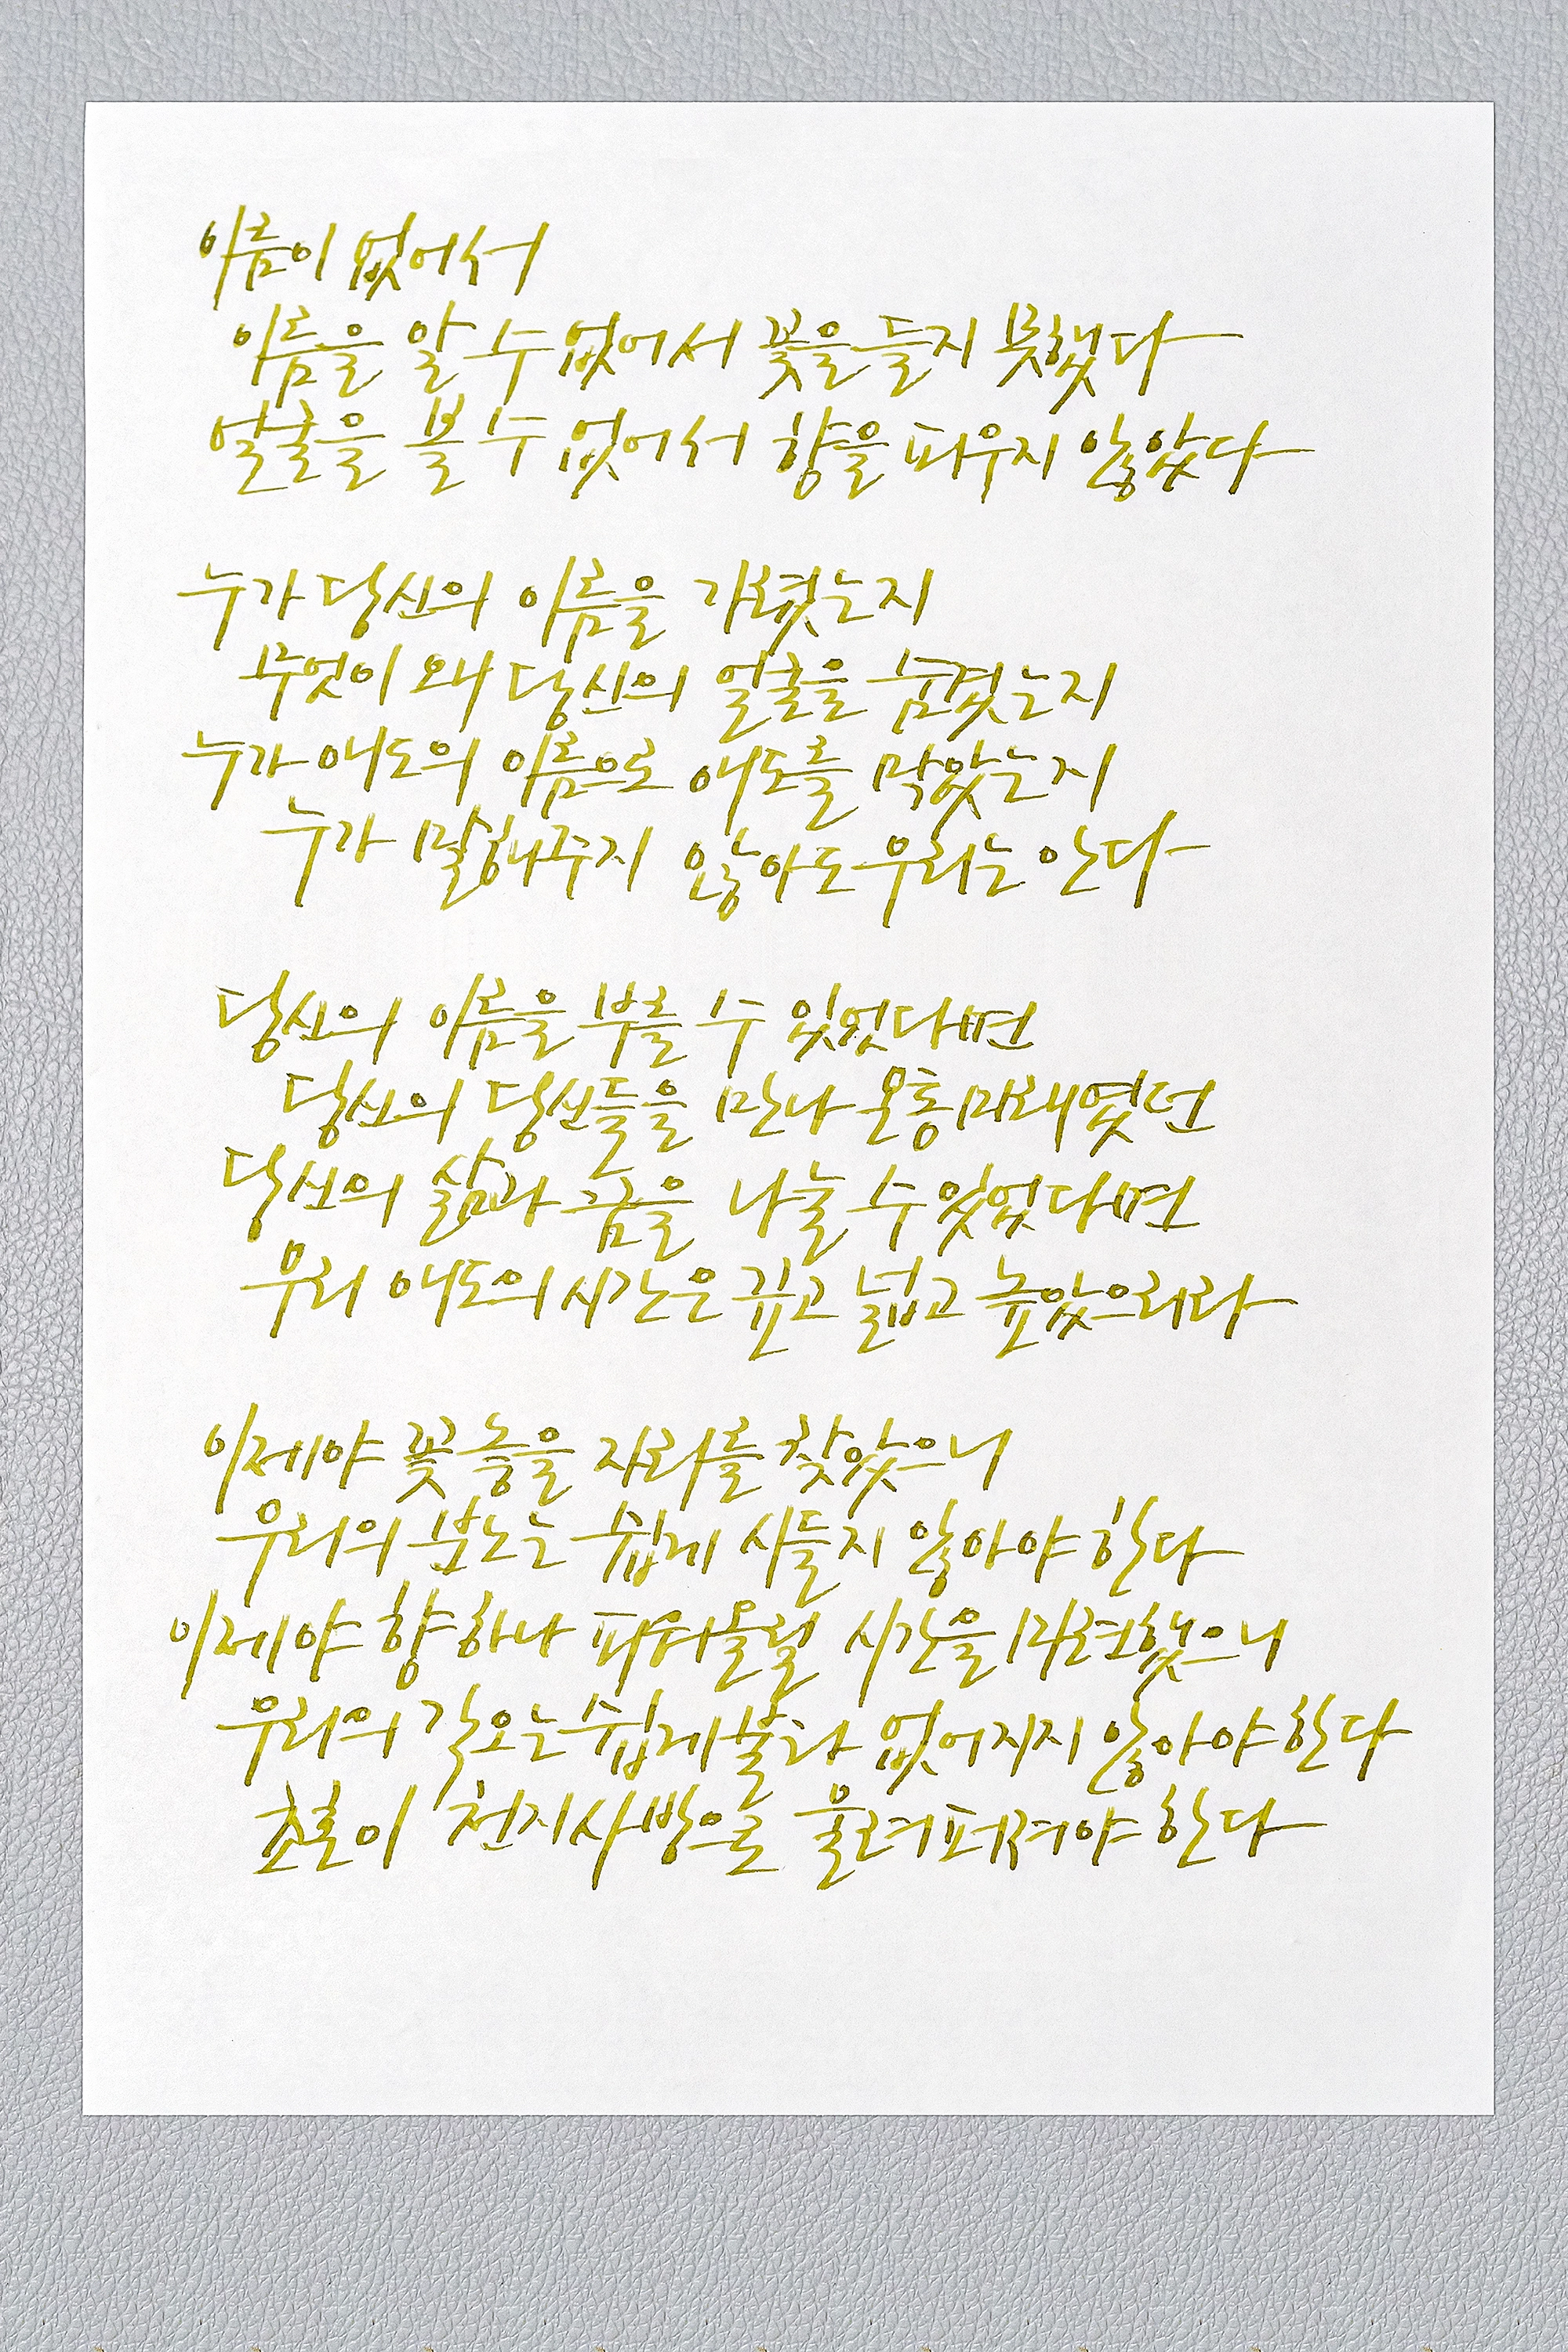 이름이 없어서
이름을 알 수 없어서 꽃을 들지 못했다
얼굴을 볼 수 없어서 향을 피우지 않았다
누가 당신의 이름을 가렸는지
무엇이 왜 당신의 얼굴을 숨겼는지
누가 애도의 이름으로 애도를 막았는지
누가 말해주지 않아도 우리는 안다
당신의 이름을 부를 수 있었다면
당신의 당신들을 만나 온통 미래였던
당신의 삶과 꿈을 나눌 수 있었다면
우리 애도의 시간은 깊고 넓고 높았으리라
이제야 꽃 놓을 자리를 찾았으니
우리의 분노는 쉽게 시들지 않아야 한다
이제야 향 하나 피워올릴 시간을 마련했으니
우리의 각오는 쉽게 불타 없어지지 않아야 한다
초혼이 천지사방으로 울려퍼져야 한다